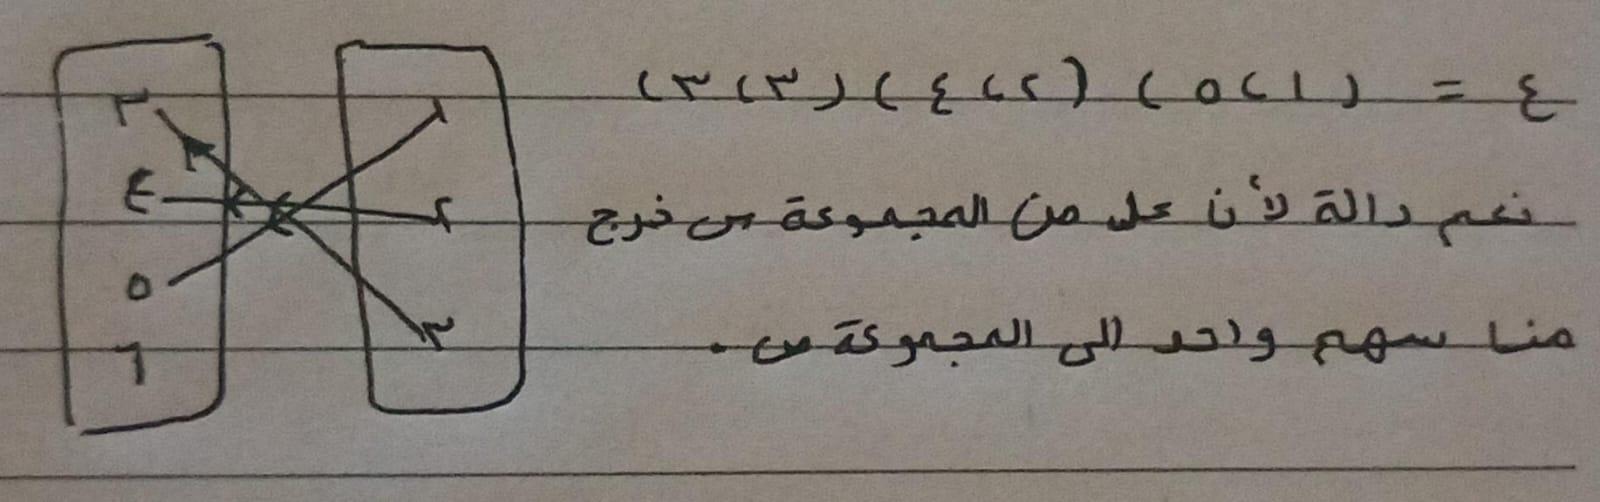 ع = (١،٥) (٢،٤) (٣،٣)
نعم دالة لأن كل من المجموعة س خرج
منا سهم واحد الى المجموعة ص .
١
٢
٣
٣
٤
٥
٦